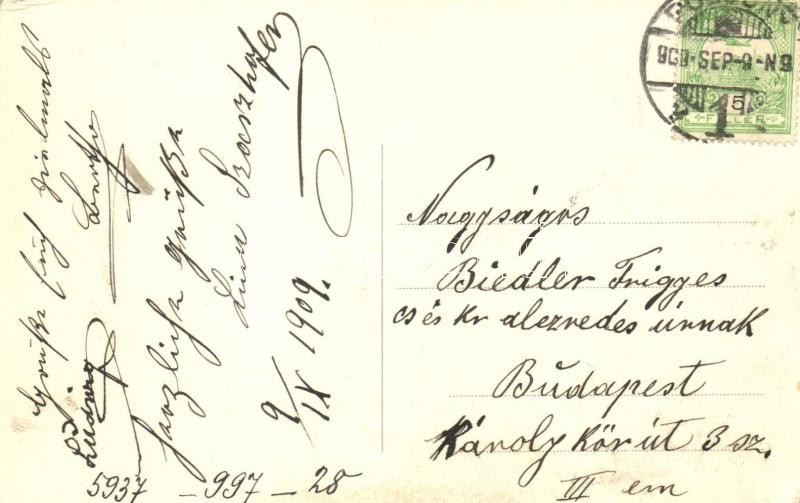 Grüße Euch vielmals
Bertha
Ludwig
Herzliche Grüße
Szaszhofer
9/IX 1909.
5937 - 997 - 28
909 SEP-9-N9
1
5
FILLÉR
Nagyságos
Biedler Frigyes
cs és Kr alezredes úrnak
Budapest
Károly Körút 3 sz.
III em